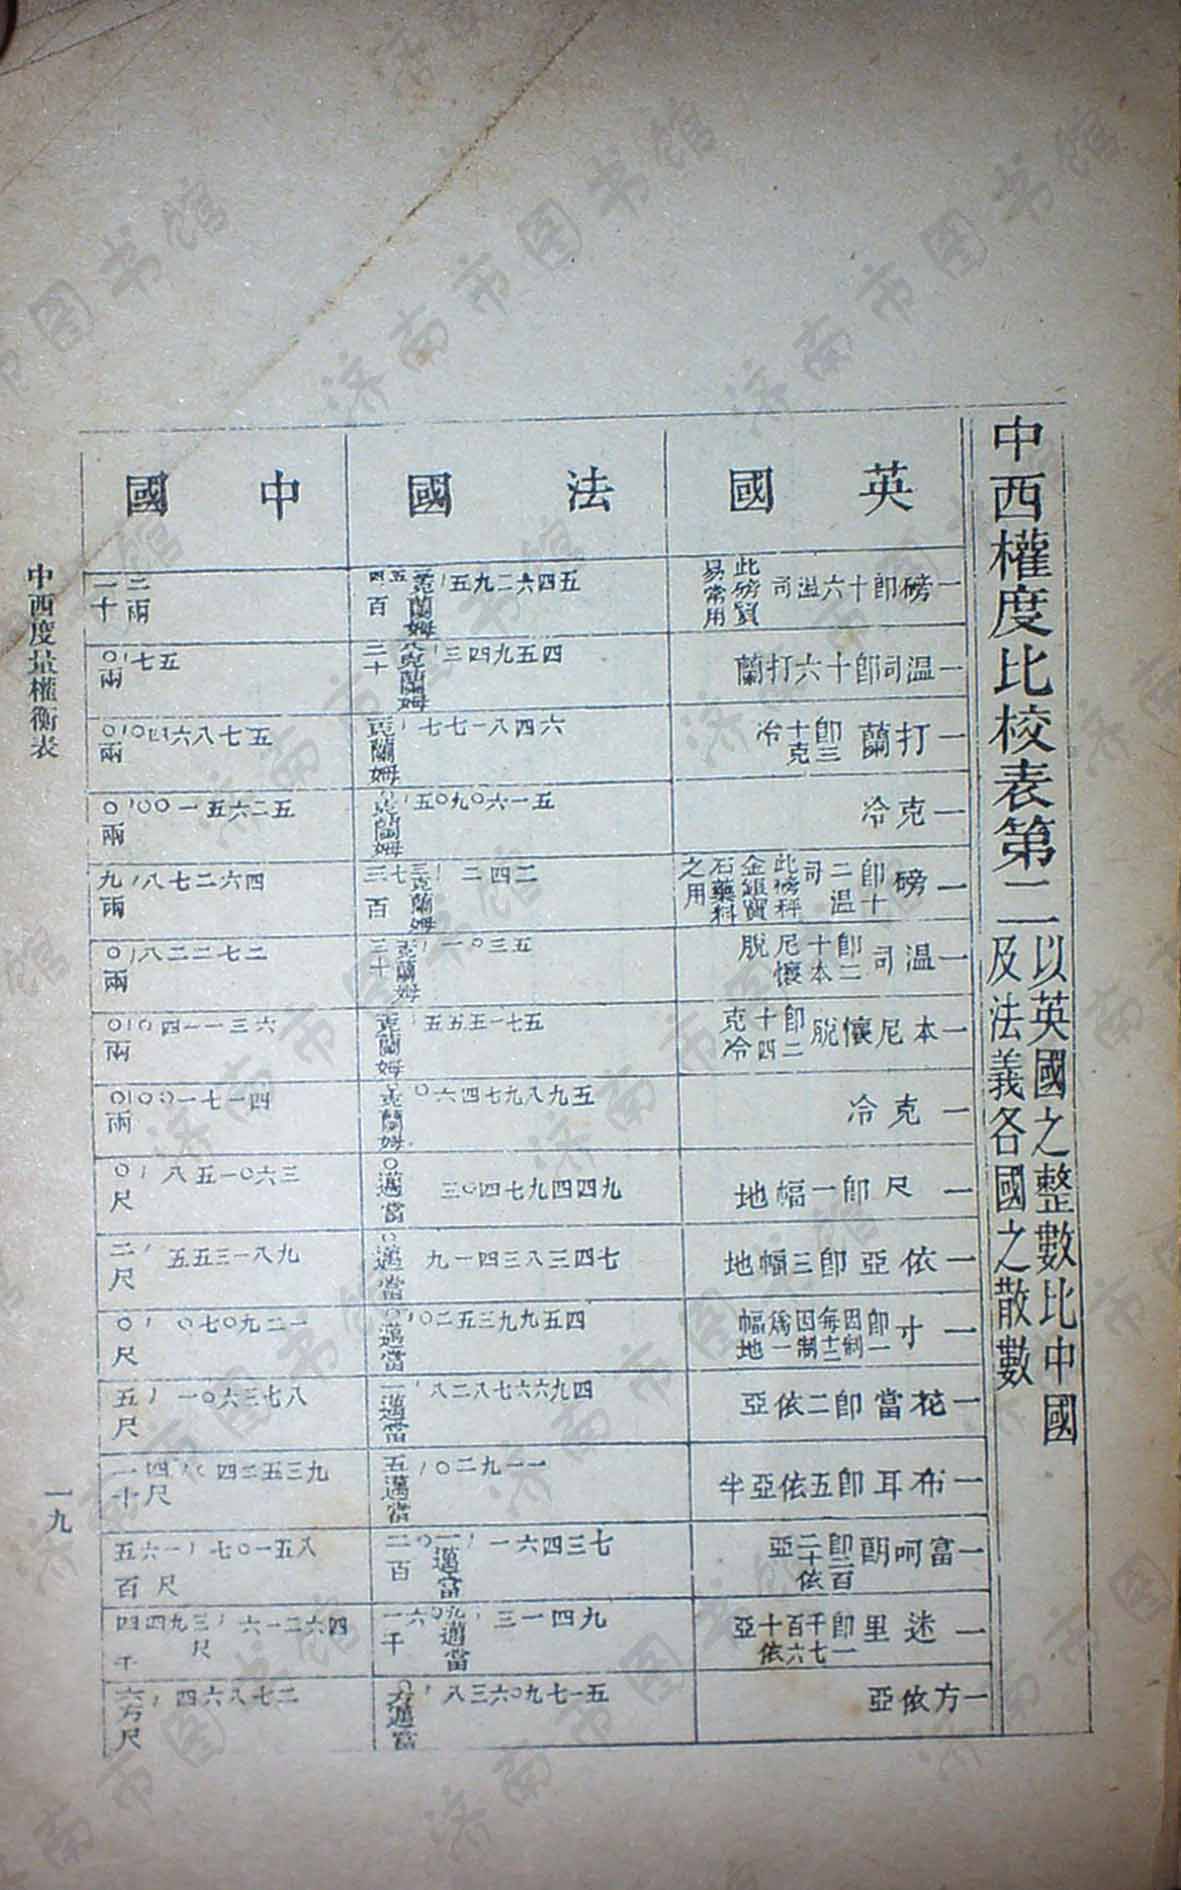 中西權度比校表第二
以英國之整數比中國
及法義各國之散數
英國
法國
中國
一磅即十六溫司此磅貿易常用
四百五三克蘭姆,五九二六四五
一十二兩
一溫司即十六打蘭
二十八克蘭姆,三四九五四
〇兩,七五
一打蘭即三十克冷
一克蘭姆,七七一八四六
〇兩,〇四六八七五
一克冷
〇克蘭姆,五〇九〇六一五
〇兩,〇〇一五六二五
一磅即十二溫司此磅秤金銀寶石藥料之用
三百七三克蘭姆,二四二
九兩,八七二六四
一溫司即二十本尼懷脫
三十一克蘭姆,一〇三五
〇兩,八二二七二
一本尼懷脫即二十四克冷
一克蘭姆,五五五一七五
〇兩,〇四一一三六
一克冷
〇克蘭姆,〇六四七九八九五
〇兩,〇〇一七一四
一尺即一幅地
〇邁當,三〇四七九四四九
〇尺,八五一〇六三
一依亞即三幅地
〇邁當,九一四三八三四七
二尺,五五三一八九
一寸即一因制每十二因制為一幅地
〇邁當,〇二五三九九五四
〇尺,〇七〇九二一
一花當即二依亞
一邁當,八二八七六六九四
五尺,一〇六三七八
一布耳即五依亞半
五邁當,〇二九一一
一十四尺,〇四二五三九
一富呵朗即二百二十依亞
二百〇一邁當,一六四三七
五百六一尺,七〇一五八
一迷里即一千七百六十依亞
一千六〇九邁當,三一四九
四千四九三尺,六一二六四
一方依亞
〇方邁當,八三六〇九七一五
六方尺,四六八七二
中西度量權衡表
一九
济南市图书馆